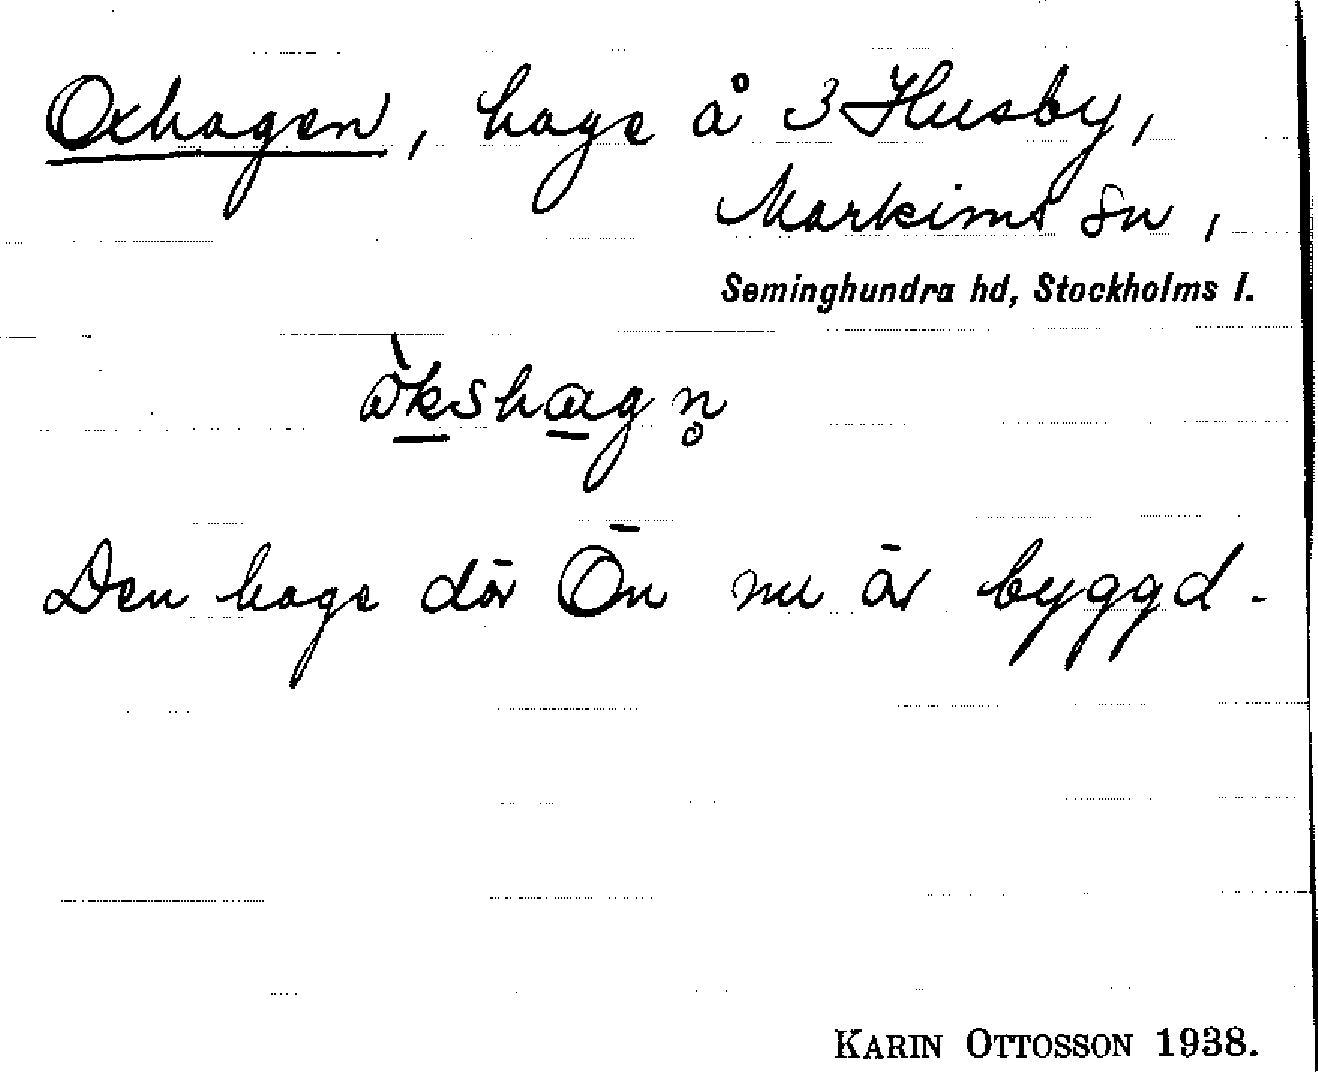 Oxhagen, hage å 3 Husby,
Markims sn,
Seminghundra hd, Stockholms l.
òkshagn̥
Den hage där Ön nu är byggd.
KARIN OTTOSSON 1938.